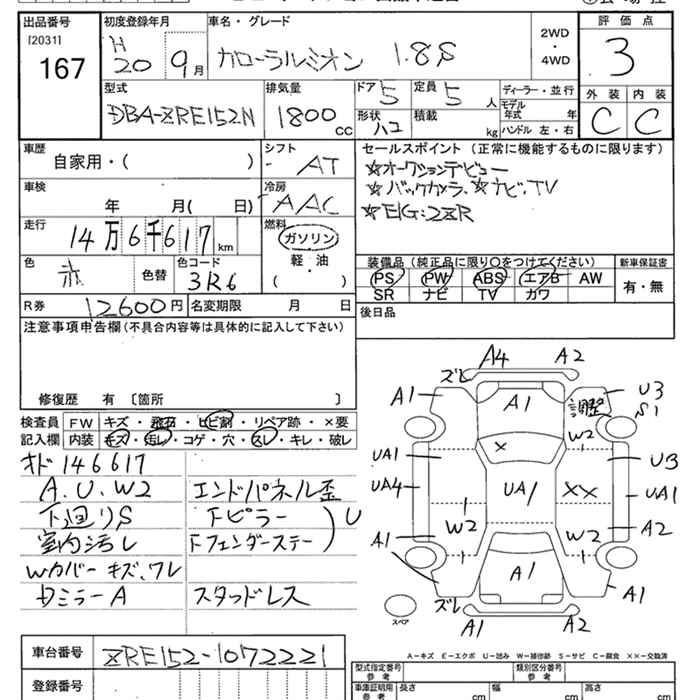 出品番号
[2031]
167
初度登録年月
H
20 9月
車名・グレード
カローラルミオン 1.8S
2WD
・
4WD
評価点
3
型式
DBA-ZRE152N
排気量
1800 CC
ドア 5
定員 5 人
形状 ハコ
積載 kg
ディーラー・並行
モデル年式 年
ハンドル 左・右
外装 内装
C C
車歴
自家用・( )
シフト
AT
車検
年 月( 日)
冷房
AAC
走行
14万6千617km
燃料
ガソリン
軽・油
( )
色
赤
色替
色コード
3R6
R券 12600円
名変期限 月 日
セールスポイント(正常に機能するものに限ります)
☆オークションデビュー
☆バックカメラ、☆ナビ、TV
☆E/G:2ZR
装備品(純正品に限り○をつけてください)
新車保証書
PS PW ABS エアB AW
SR ナビ TV カワ
有・無
後日品
注意事項申告欄(不具合内容等は具体的に記入して下さい)
修復歴 有 〔箇所 〕
検査員記入欄
FW キズ・飛石・ヒビ割・リペア跡・×要
内装 キズ・汚レ・コゲ・穴・スレ・キレ・破レ
オド146617
A、U、W2
下廻りS
室内汚レ
Wカバーキズ、ワレ
Dミラー A
エンドパネル歪
Fピラー
Fフェンダーステー
)U
スタッドレス
ズレ A4 A2
A1 A1 U3
S1
調整
W2
×
UA1 U3
UA4 UA1 ×× UA1
W2 W2 A2
A1 A1 A1
ズレ A1 A2
スペア
A-キズ E-エクボ U-凹み W-補修跡 S-サビ C-腐食 ××-交換済
車台番号 ZRE152-1072221
登録番号
型式指定番号 参考
類別区分番号 参考
車庫証明用 参考
長さ cm
幅 cm
高さ cm